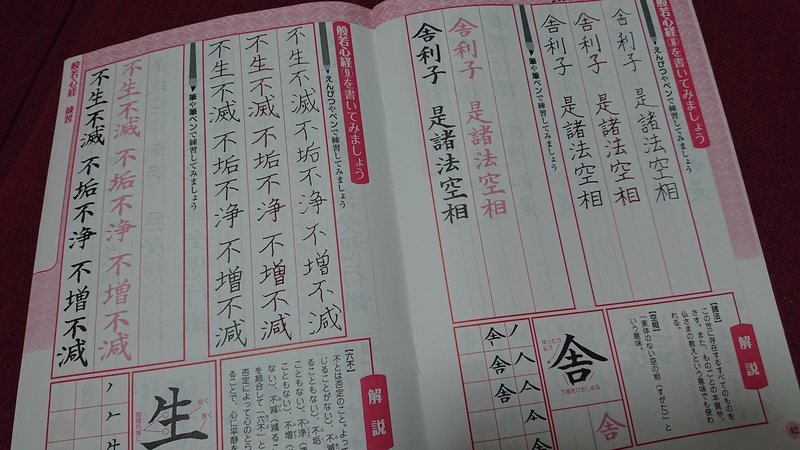 般若心経⑧を書いてみましょう
▼えんぴつやペンで練習してみましょう
舎利子 是諸法空相
舎利子 是諸法空相
舎利子 是諸法空相
▼筆や筆ペンで練習してみましょう
舎利子 是諸法空相
舎利子 是諸法空相
解説
【諸法】
この世に存在するすべてのものを
さす。また、ものごとの本質や、
仏さまの教えという意味でも使わ
れる。
【空相】
「実体のない空の相(すがた)」と
いう意味。
ゆったり
払う
舎
下部をひきしめる
舎
42
般若心経⑨を書いてみましょう
▼えんぴつやペンで練習してみましょう
不生不滅 不垢不浄 不増不減
不生不滅 不垢不浄 不増不減
不生不滅 不垢不浄 不増不減
▼筆や筆ペンで練習してみましょう
不生不滅 不垢不浄 不増不減
不生不滅 不垢不浄 不増不減
般若心経 練習
解説
【六不】
不とは否定のこと。よって
じることがない)、不滅
こともない)、不垢
こともない)、不浄
ない)、不増
ない)、不減(減るこ
を総合して「六不」と
否定によって心のとら
ることで、心に平静を
生
短く
長く